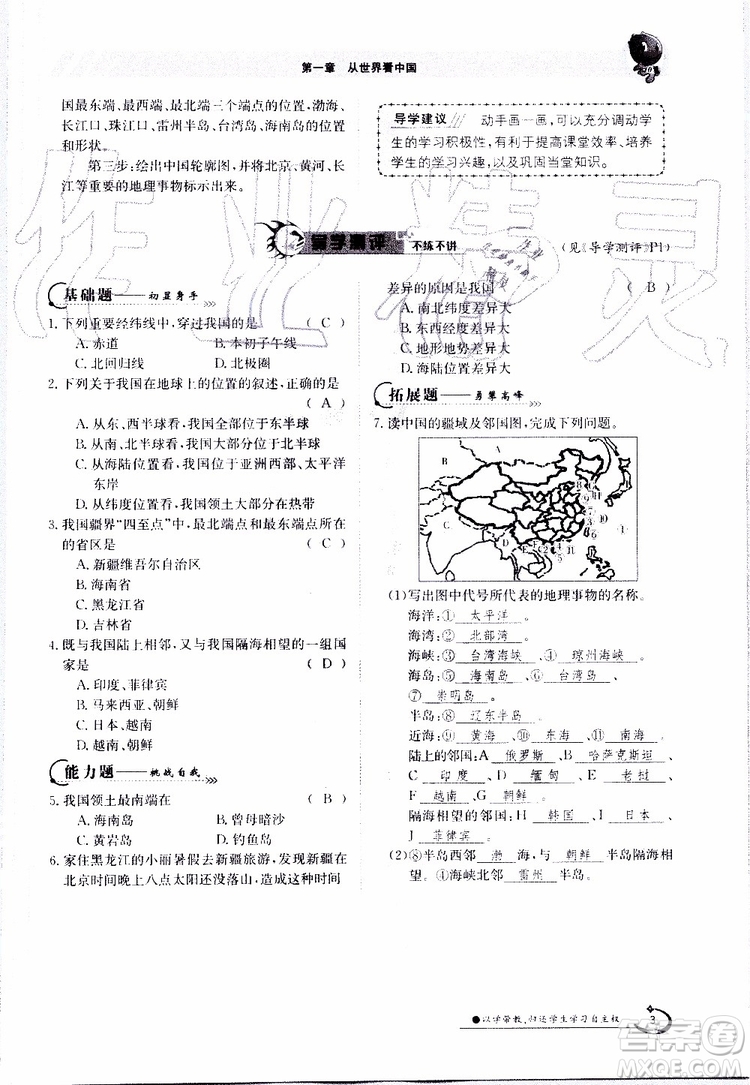 第一章　从世界看中国
国最东端、最西端、最北端三个端点的位置,渤海、
长江口、珠江口、雷州半岛、台湾岛、海南岛的位置
和形状。
第三步:绘出中国轮廓图,并将北京、黄河、长
江等重要的地理事物标示出来。
导学建议 动手画一画,可以充分调动学
生的学习积极性,有利于提高课堂效率、培养
学生的学习兴趣,以及巩固当堂知识。
导学测评 不练不讲
(见《导学测评》P1)
基础题——初显身手
1. 下列重要经纬线中,穿过我国的是 ( C )
A. 赤道 B. 本初子午线
C. 北回归线 D. 北极圈
2. 下列关于我国在地球上的位置的叙述,正确的是
( A )
A. 从东、西半球看,我国全部位于东半球
B. 从南、北半球看,我国大部分位于北半球
C. 从海陆位置看,我国位于亚洲西部、太平洋
东岸
D. 从纬度位置看,我国领土大部分在热带
3. 我国疆界“四至点”中,最北端点和最东端点所在
的省区是 ( C )
A. 新疆维吾尔自治区
B. 海南省
C. 黑龙江省
D. 吉林省
4. 既与我国陆上相邻,又与我国隔海相望的一组国
家是 ( D )
A. 印度、菲律宾
B. 马来西亚、朝鲜
C. 日本、越南
D. 越南、朝鲜
能力题——挑战自我
5. 我国领土最南端在 ( B )
A. 海南岛 B. 曾母暗沙
C. 黄岩岛 D. 钓鱼岛
6. 家住黑龙江的小丽暑假去新疆旅游,发现新疆在
北京时间晚上八点太阳还没落山,造成这种时间
差异的原因是我国 ( B )
A. 南北纬度差异大
B. 东西经度差异大
C. 地形地势差异大
D. 海陆位置差异大
拓展题——勇攀高峰
7. 读中国的疆域及邻国图,完成下列问题。
(1)写出图中代号所代表的地理事物的名称。
海洋:① 太平洋。
海湾:② 北部湾。
海峡:③ 台湾海峡、④ 琼州海峡。
海岛:⑤ 海南岛、⑥ 台湾岛、
⑦ 崇明岛。
半岛:⑧ 辽东半岛。
近海:⑨ 黄海、⑩ 东海、⑪ 南海。
陆上的邻国:A 俄罗斯、B 哈萨克斯坦、
C 印度、D 缅甸、E 老挝、
F 越南、G 朝鲜。
隔海相望的邻国:H 韩国、I 日本、
J 菲律宾。
(2)⑧半岛西邻 渤 海,与 朝鲜 半岛隔海相
望。④海峡北邻 雷州 半岛。
●以学带教,归还学生学习自主权
3
作业精灵
答案圈